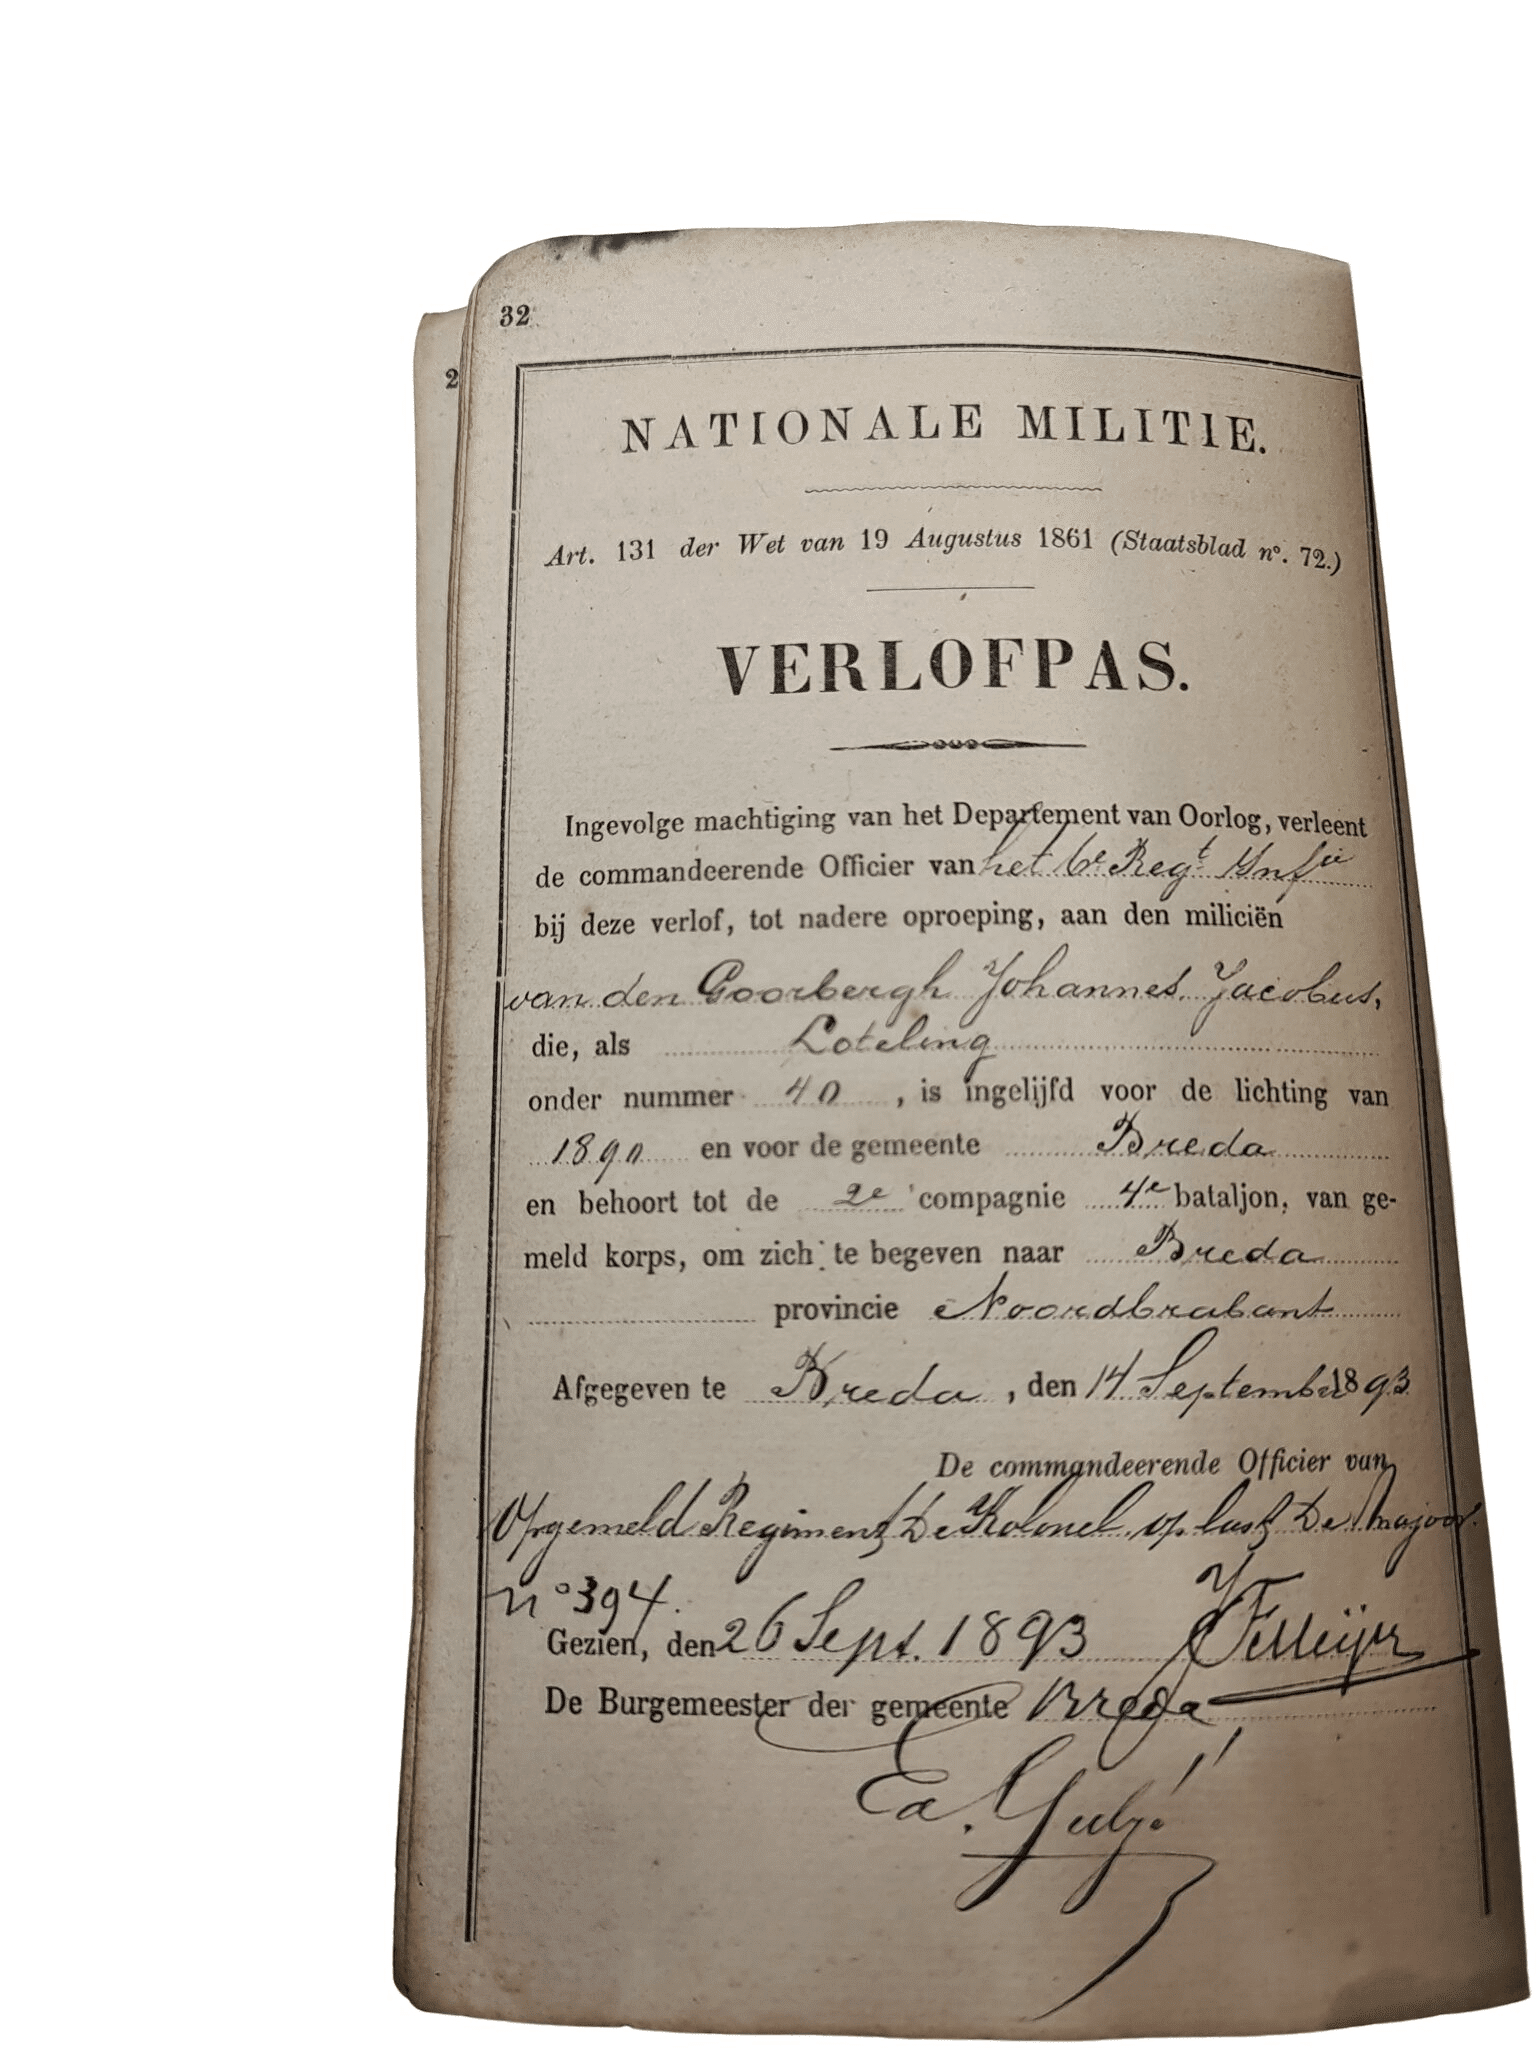 32
2
NATIONALE MILITIE.
Art. 131 der Wet van 19 Augustus 1861 (Staatsblad nº. 72.)
VERLOFPAS.
Ingevolge machtiging van het Departement van Oorlog, verleent
de commandeerende Officier van het 6e Regt Infie
bij deze verlof, tot nadere oproeping, aan den miliciën
van den Goorbergh Johannes Jacobus,
die, als Loteling
onder nummer 40, is ingelijfd voor de lichting van
1890 en voor de gemeente Breda
en behoort tot de 2e compagnie 4e bataljon, van ge-
meld korps, om zich te begeven naar Breda
provincie Noordbrabant
Afgegeven te Breda, den 14 September 1893
De commandeerende Officier van
Opgemeld Regiment, De Kolonel, op last, De Majoor.
Nº 394.
Gezien, den 26 Sept. 1893
De Burgemeester der gemeente Breda
Ed. Gulj